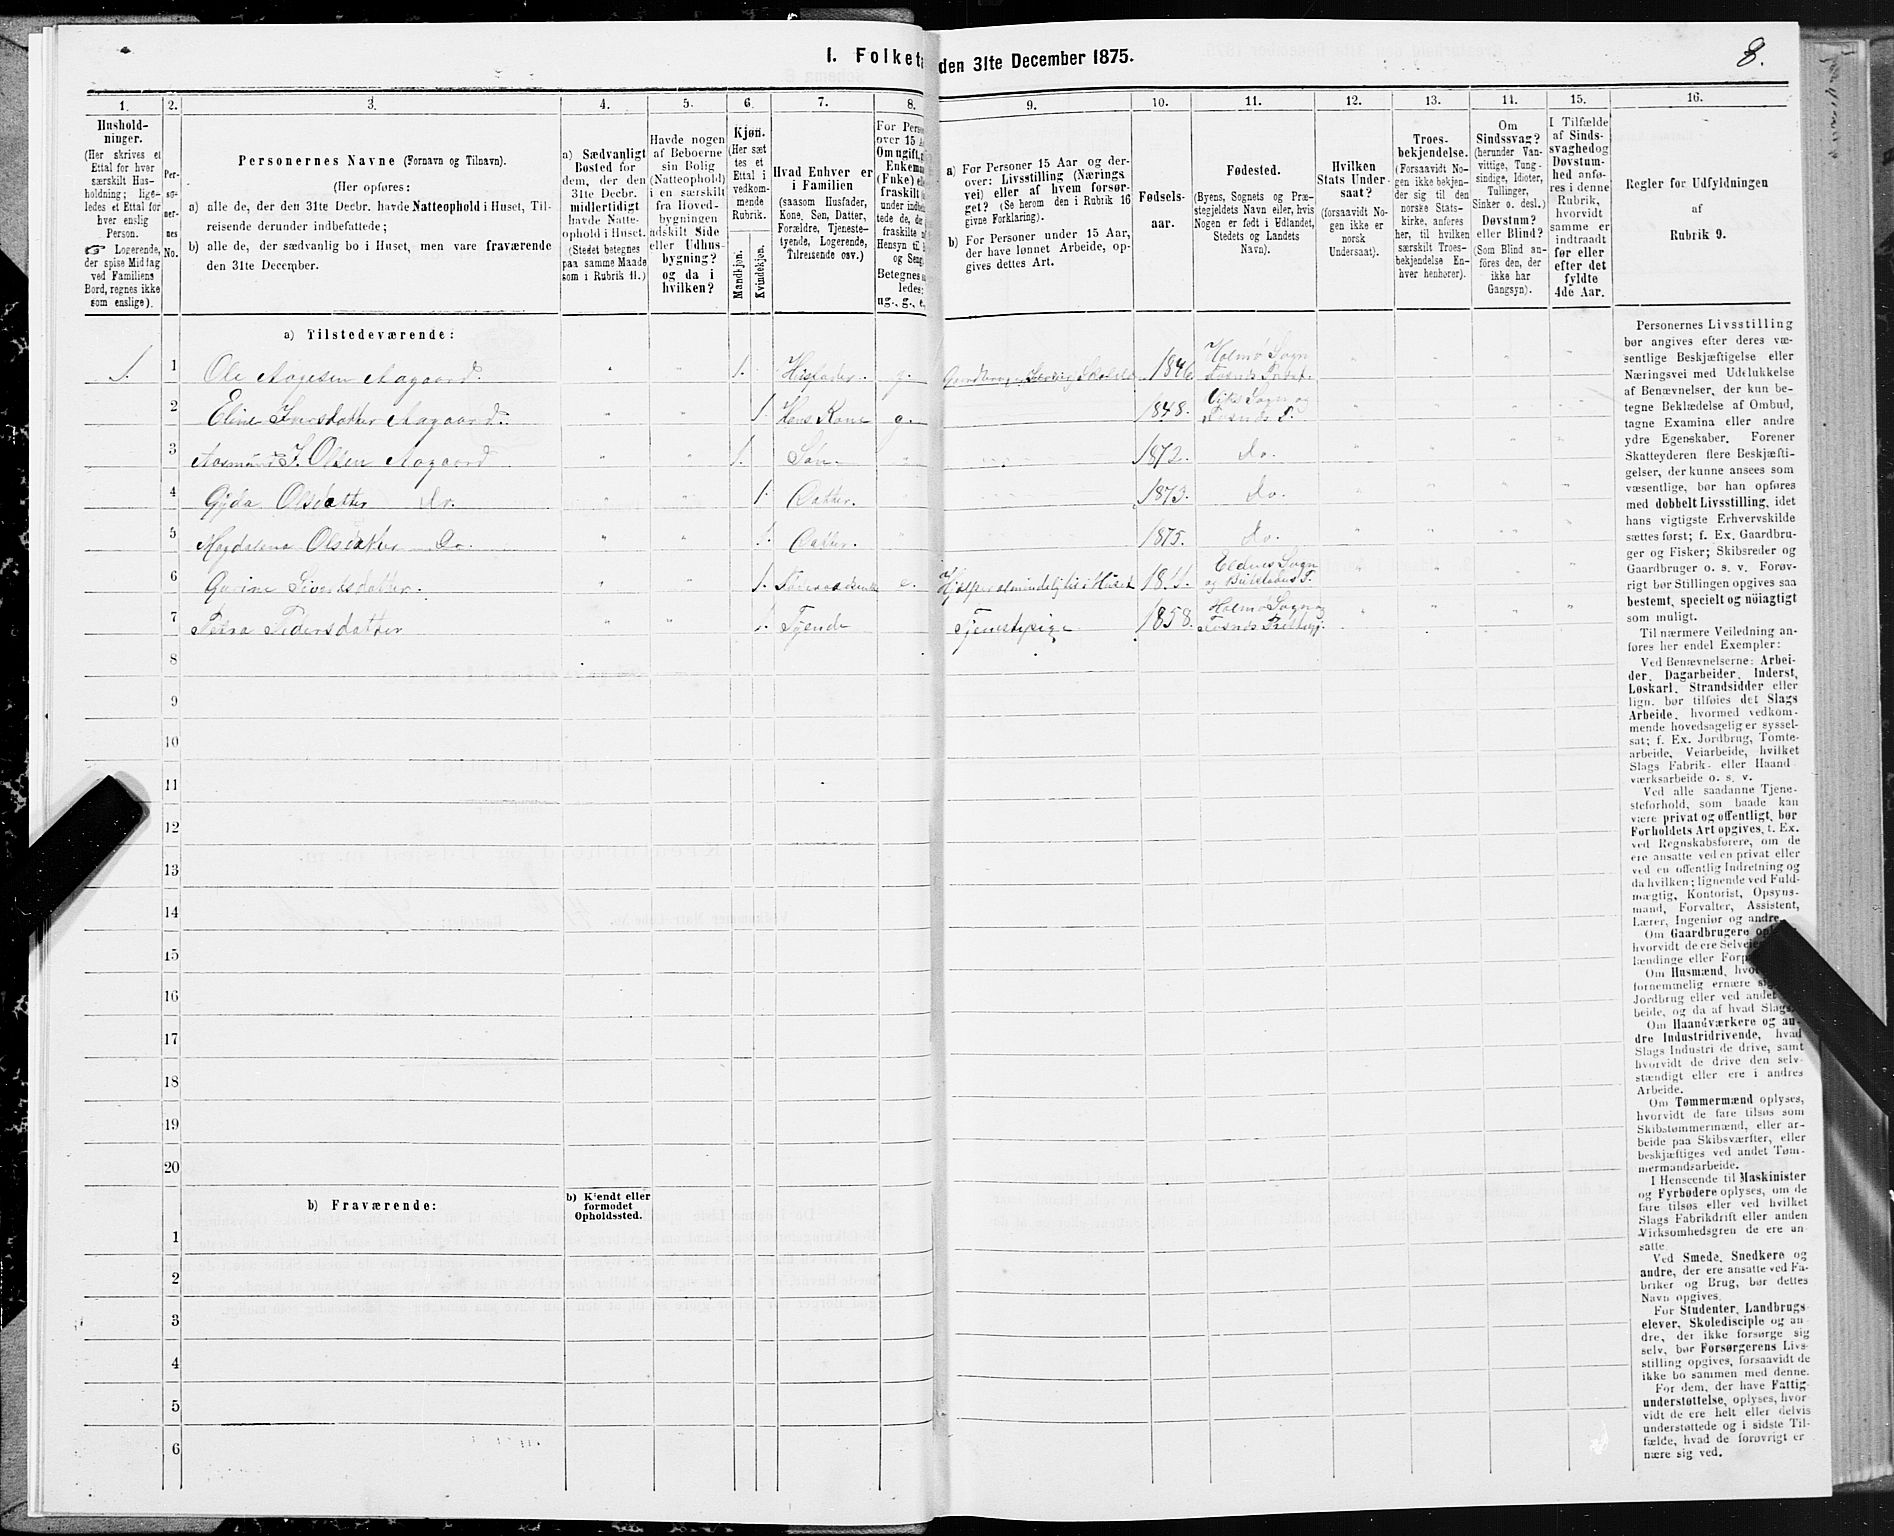 I. Folketæ
den 31te December 1875.
8.
1.
2.
3.
4.
5.
6.
7.
8.
9.
10.
11.
12.
13.
14.
15.
16.
Hushold-
ninger.
(Her skrives et
Ettal for hver
særskilt Hus-
holdning; lige-
ledes et Ettal for
hver enslig
Person.
☞ Logerende,
der spise Middag
ved Familiens
Bord, regnes ikke
som enslige).
Per-
so-
ner-
nes
No.
Personernes Navne (Fornavn og Tilnavn).
(Her opføres:
a) alle de, der den 31te Decbr. havde Natteophold i Huset, Til-
reisende derunder indbefattede;
b) alle de, der sædvanlig bo i Huset, men vare fraværende
den 31te December.
a) Sædvanligt
Bosted for
dem, der den
31te Decbr.
midlertidigt
havde Natte-
ophold i Huset.
(Stedet betegnes
paa samme Maade
som i Rubrik 11.)
Havde nogen
af Beboerne
sin Bolig
(Natteophold)
i en særskilt
fra Hoved-
bygningen
adskilt Side
eller Udhus-
bygning?
og da i
hvilken?
Kjøn.
(Her sæt
tes et
Ettal i
vedkom-
mende
Rubrik.
Mandkjøn.
Kvindekjøn.
Hvad Enhver er
i Familien
(saasom Husfader,
Kone, Søn, Datter,
Forældre, Tjeneste-
tyende, Logerende,
Tilreisende osv.)
For Perso
over 15 A
Om ugift,
Enkema
(Fnke) el
fraskilt
under indb
tede de, d
fraskilte
Hensyn til
og Seng
Betegnes s
ledes:
ug., g., e.
a) For Personer 15 Aar og der-
over: Livsstilling (Nærings
vei) eller af hvem forsør-
get? (Se herom den i Rubrik 16
givne Forklaring).
b) For Personer under 15 Aar,
der have lønnet Arbeide, op-
gives dettes Art.
Fødsels-
aar.
Fødested.
(Byens, Sognets og Præ-
stegjeldets Navn eller, hvis
Nogen er født i Udlandet,
Stedets og Landets
Navn).
Hvilken
Stats Under-
saat?
(forsaavidt No-
gen ikke er
norsk
Undersaat).
Troes-
bekjendelse.
(Forsaavidt No-
gen ikke bekjen-
der sig til den
norske Stats-
kirke, anføres
her, til hvilken
særskilt Troes-
bekjendelse En-
hver henhører).
Om
Sindssvag?
(herunder Van-
vittige, Tung-
sindige, Idioter,
Tullinger,
Sinker o. desl.)
Døvstum?
eller Blind?
(Som Blind an-
føres den, der
ikke har
Gangsyn).
I Tilfælde
af Sinds-
svaghed og
Døvstum-
hed anfø-
res i denne
Rubrik,
hvorvidt
samme er
indtraadt
før eller
efter det
fyldte
4de Aar.
Regler for Udfyldningen
af
Rubrik 9.
a) Tilstedeværende:
1. 1 Ole Aagesen Aagaard. " " 1. Husfader. g. Gaardbruger 1846 Holmø Sogn " " " "
2 Eline Iversdatter Aagaard. " " 1. Hans Kone g. 1848. Viks Sogn og Fosnæs P. " " " "
3 Aasmund I. Olsen Aagaard " " 1. Søn " 1872. Do. " " " "
4 Gyda Olsdatter Do. " " 1. Datter. 1873. Do. " " " "
5 Magdalena Olsdatter Do. " " 1. Datter. " 1875. Do. " " " "
6 Gurine Sivertsdatter. " " 1. e. Eldnes Sogn " " " "
7 Petra Pedersdatter " " 1. Tyende Tjenestepige 1858. Holmø Sogn og " " " "
8
9
10
11
12
13
14
15
16
17
18
19
20
b) Fraværende:
b) Kjendt eller
formodet
Opholdssted.
1
2
3
4
5
6
Personernes Livsstilling
bør angives efter deres væ-
sentlige Beskjæftigelse eller
Næringsvei med Udelukkelse
af Benævnelser, der kun be-
tegne Beklædelse af Ombud,
tagne Examina eller andre
ydre Egenskaber. Forener
Skatteyderen flere Beskjæfti-
gelser, der kunne ansees som
væsentlige, bør han opføres
med dobbelt Livsstilling, idet
hans vigtigste Erhvervskilde
sættes først; f. Ex. Gaardbru-
ger og Fisker; Skibsreder og
Gaardbruger o. s. v. Forøv-
rigt bør Stillingen opgives saa
bestemt, specielt og nöiagtigt
som muligt.
Til nærmere Veiledning an-
føres her endel Exempler:
Ved Benævnelserne: Arbei-
der, Dagarbeider, Inderst,
Løskarl, Strandsidder eller
lign. bør tilføies det Slags
Arbeide, hvormed vedkom-
mende hovedsagelig er syssel-
sat; f. Ex. Jordbrug, Tomte-
arbeide, Veiarbeide, hvilket
Slags Fabrik- eller Haand
værksarbeide o. s. v.
Ved alle saadanne Tjene-
steforhold, som baade kan
være privat og offentligt, bør
Forholdets Art opgives, t. Ex.
ved Regnskabsførere, om de
ere ansatte ved en privat eller
ved en offentlig Indretning og
da hvilken; lignende ved Fuld-
mægtig, Kontorist, Opsyns-
mand, Forvalter, Assistent,
Lærer, Ingeniør og andre.
Om Gaardbrugere
hvorvidt de ere
lændinge eller
Om Husmænd,
fornemmelig ernære
Jordbrug eller ved
beide, og da af hvad Slags.
Om Haandværkere og an-
dre Industridrivende, hvad
Slags Industri de drive, samt
hvorvidt de drive den selv-
stændigt eller ere i andres
Arbeide.
Om Tømmermænd oplyses,
hvorvidt de fare tilsøs som
Skibstømmermænd, eller ar-
beide paa Skibsværfter, eller
beskjæftiges ved andet Tøm-
mermandsarbeide.
I Henseende til Maskinister
og Fyrbødere oplyses, om de
fare tilsøs eller ved hvilket
Slags Fabrikdrift eller anden
Virksomhedsgren de ere an-
satte.
Ved Smede, Snedkere og
andre, der ere ansatte ved Fa-
briker og Brug, bør dettes
Navn opgives.
For Studenter, Landbrugs
elever, Skoledisciple og an-
dre, der ikke forsørge sig
selv, bør Forsørgerens Livs-
stilling opgives, forsaavidt de
ikke bo sammen med denne.
For dem, der have Fattig-
understøttelse, oplyses, hvor-
vidt de ere helt eller delvis
understøttede og i sidste Til-
fælde, hvad de forøvrigt er
nære sig ved.